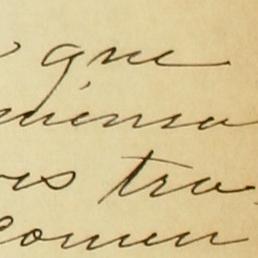 que
miensa
es tra
comen